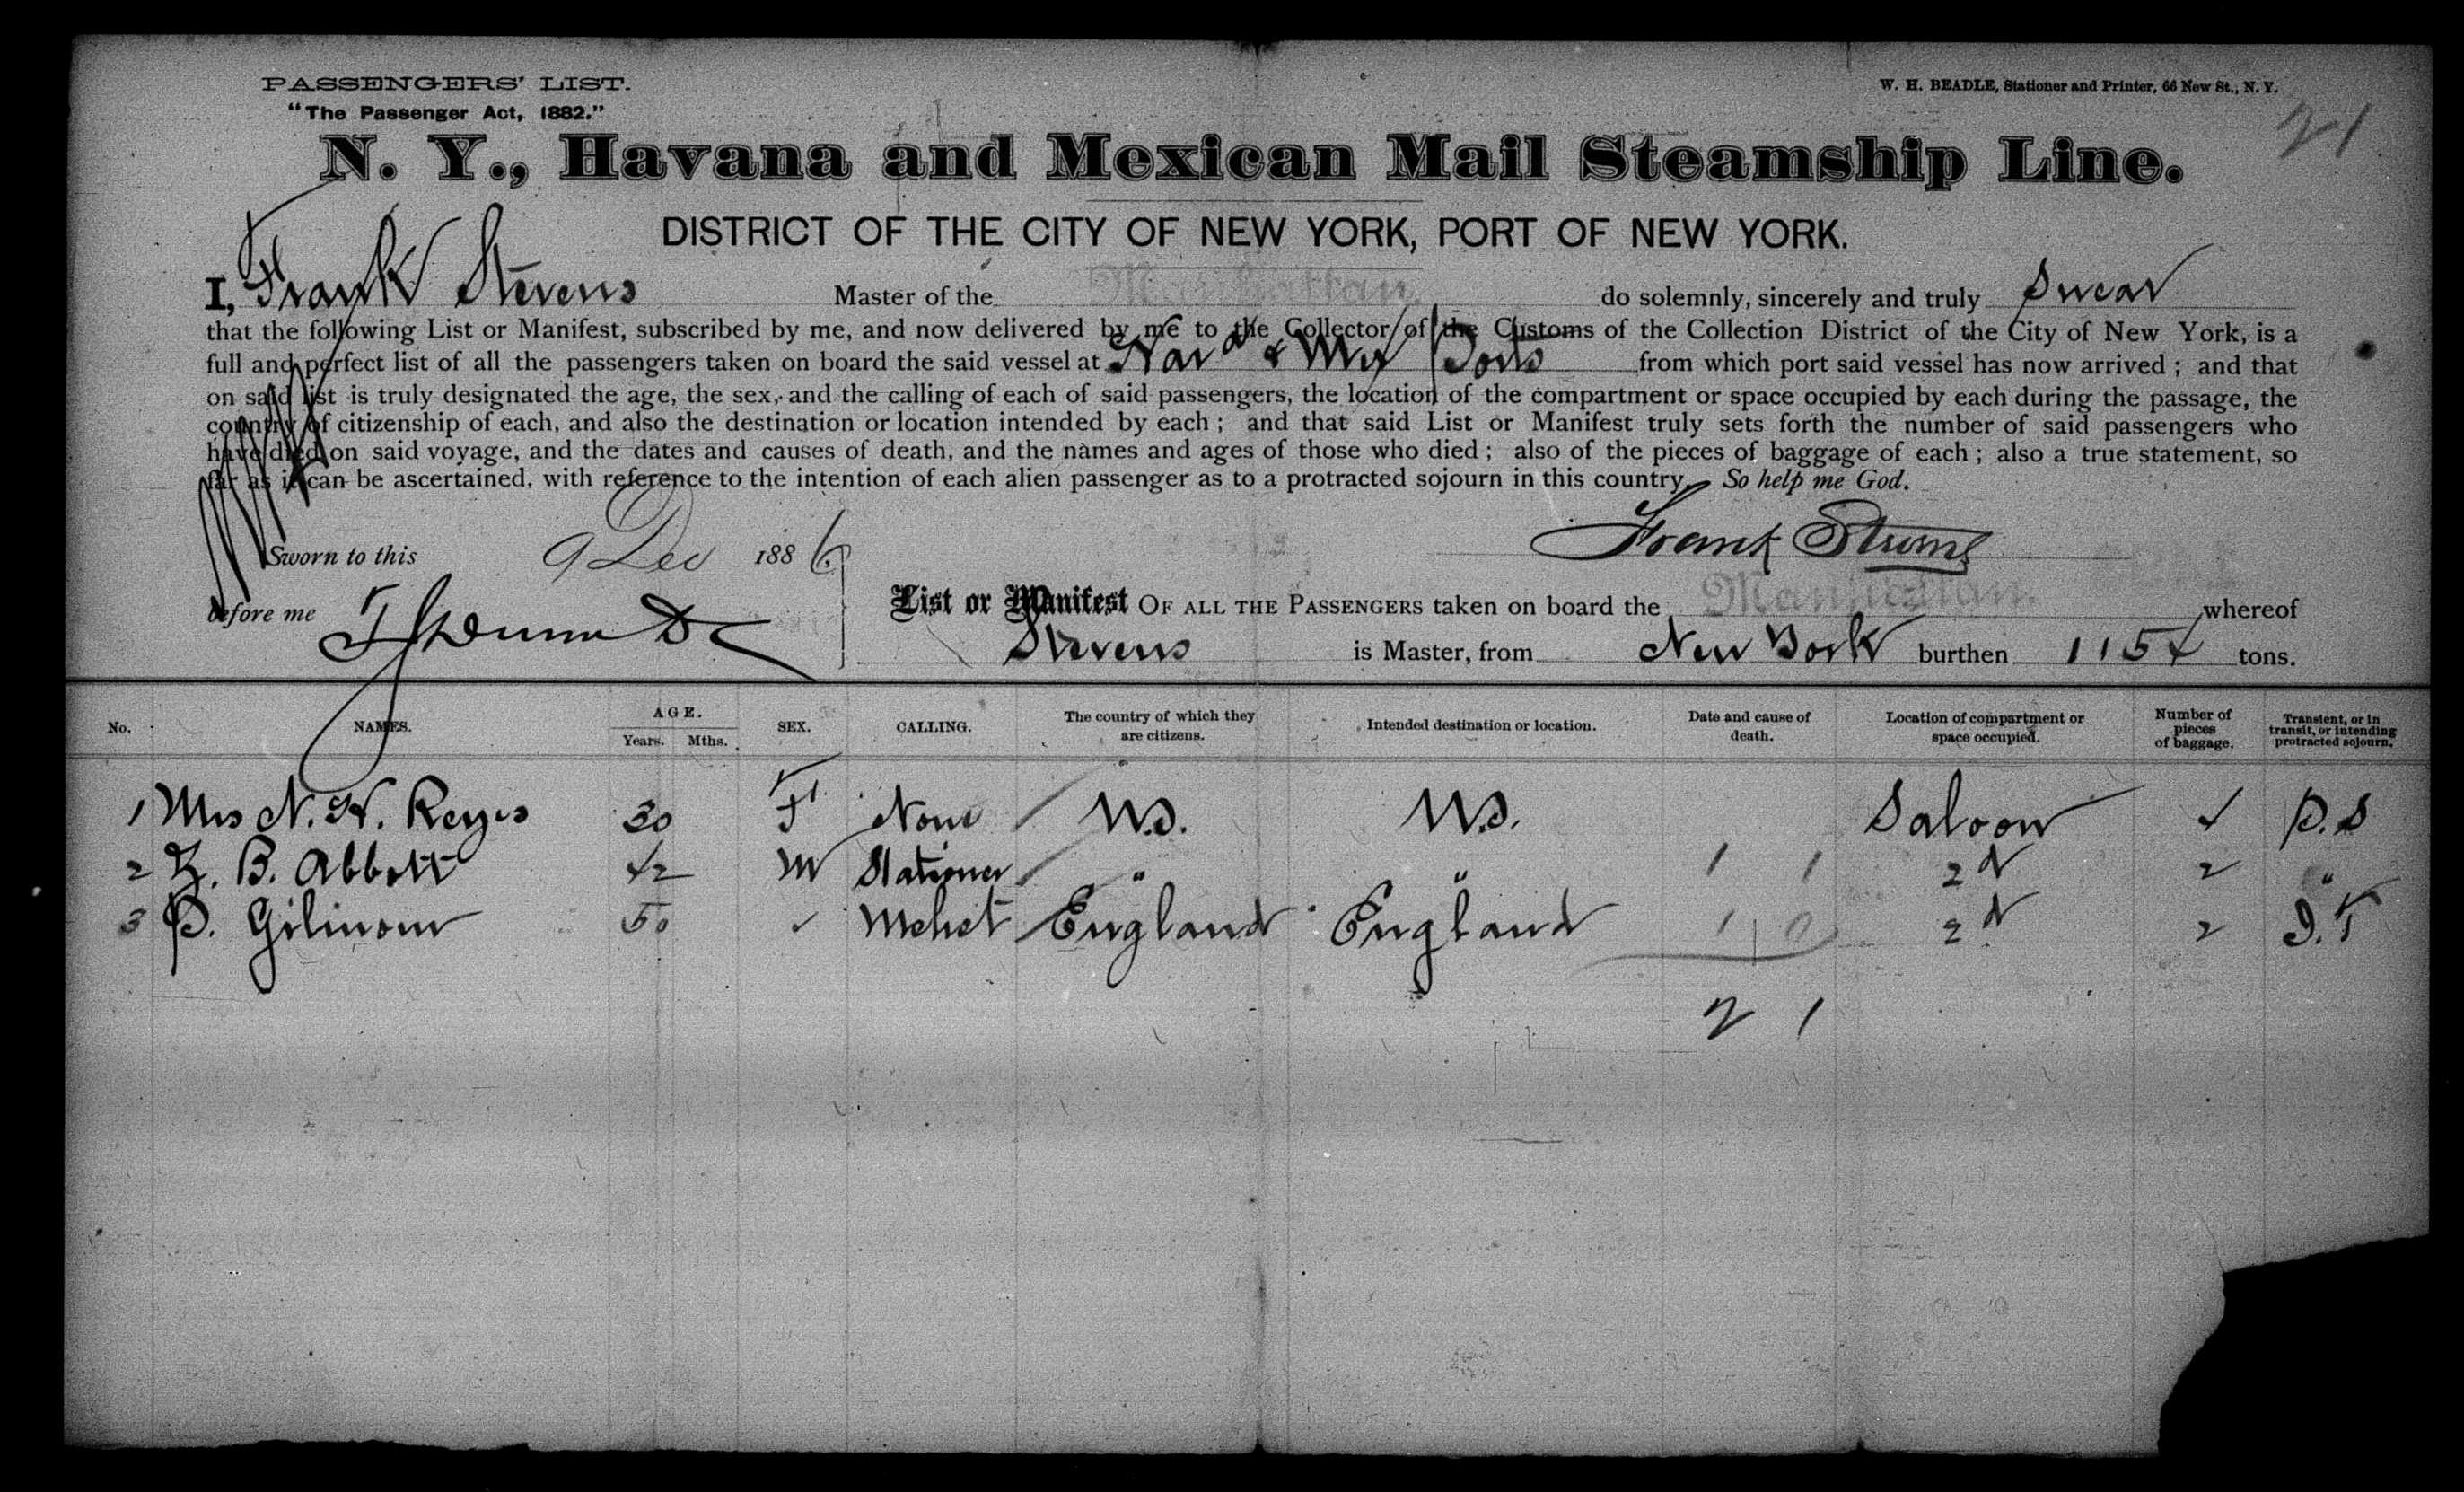 PASSENGERS' LIST.
"The Passenger Act, 1882."
W. H. BEADLE, Stationer and Printer, 66 New St., N. Y.
21
N. Y., Havana and Mexican Mail Steamship Line.
DISTRICT OF THE CITY OF NEW YORK, PORT OF NEW YORK.
I, Frank Stevens Master of the Manhattan. do solemnly, sincerely and truly Swear
that the following List or Manifest, subscribed by me, and now delivered by me to the Collector of the Customs of the Collection District of the City of New York, is a
full and perfect list of all the passengers taken on board the said vessel at Hav a & Mex Ports from which port said vessel has now arrived; and that
on said list is truly designated the age, the sex, and the calling of each of said passengers, the location of the compartment or space occupied by each during the passage, the
country of citizenship of each, and also the destination or location intended by each; and that said List or Manifest truly sets forth the number of said passengers who
have died on said voyage, and the dates and causes of death, and the names and ages of those who died; also of the pieces of baggage of each; also a true statement, so
far as it can be ascertained, with reference to the intention of each alien passenger as to a protracted sojourn in this country. So help me God.
Sworn to this 9 Dec 1886 Frank Stevens
before me
List or Manifest OF ALL THE PASSENGERS taken on board the Manhattan. whereof
Stevens is Master, from New York burthen 1154 tons.
No. NAMES. AGE. Years. Mths. SEX. CALLING. The country of which they are citizens. Intended destination or location. Date and cause of death. Location of compartment or space occupied. Number of pieces of baggage. Transient, or in transit, or intending protracted sojourn.
1 Mrs N. H. Reyes 30 F None U.S. U.S. Saloon 4 P.S
2 B. Abbott 42 M Stationer " " 1 1 2d 2 "
3 P. Gilmour 50 ✓ Mchct England England 1 0 2d 2 I.T
2 1